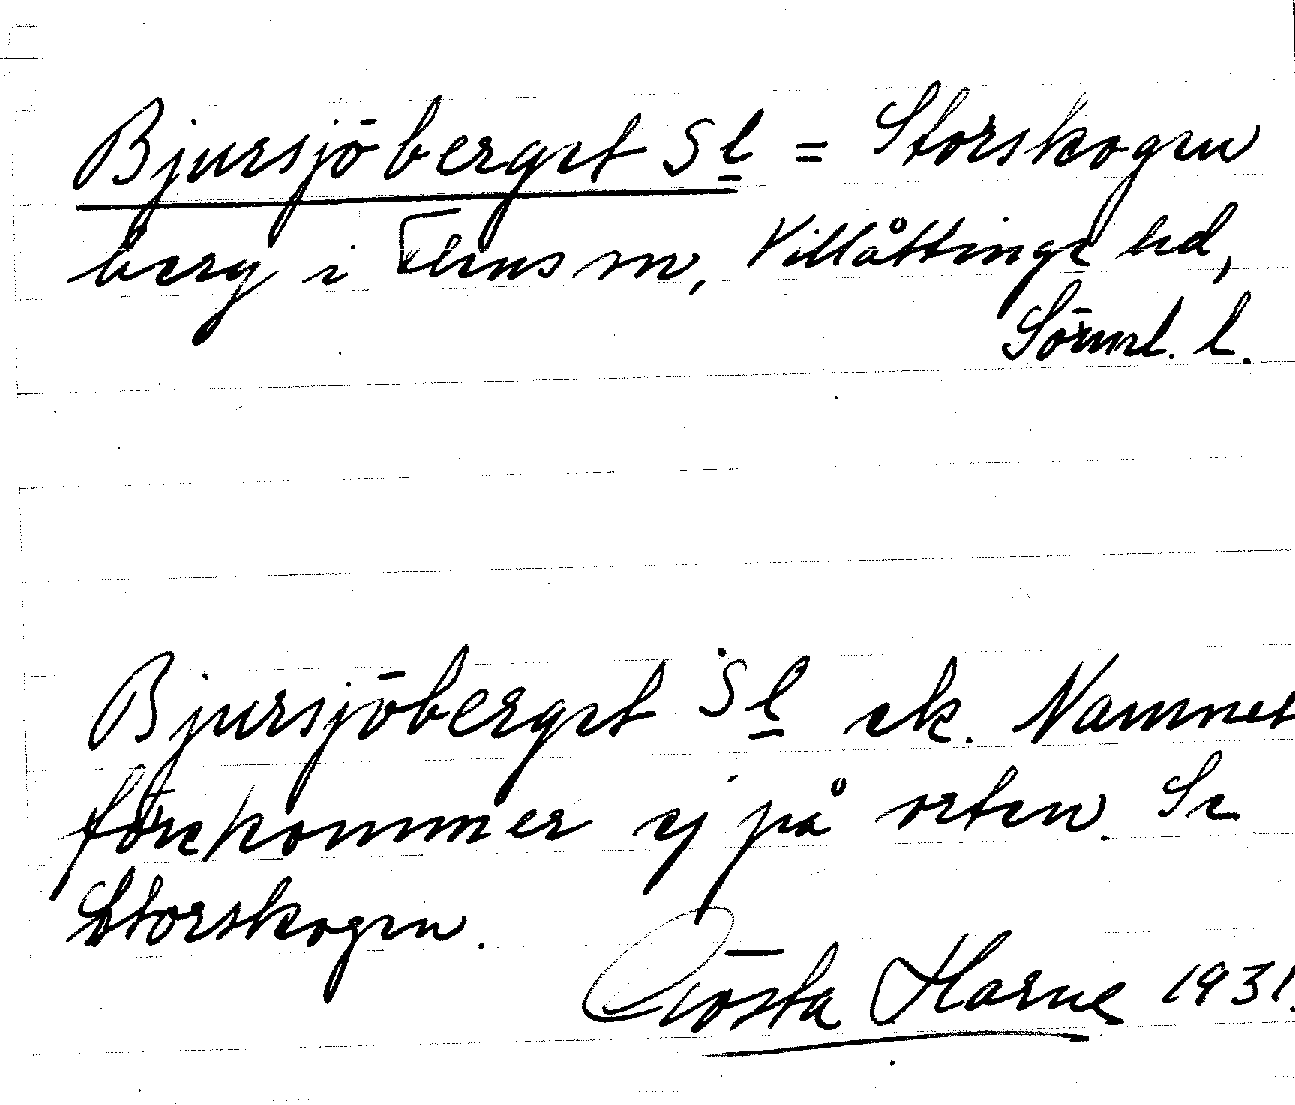 Bjursjöberget Sl = Storskogen
berg i Flens sn, Villåttinge hd,
Sörml. l.
Bjursjöberget Sl ek. Namnet
förekommer ej på orten. Se
Storskogen.
Gösta Harne 1931.